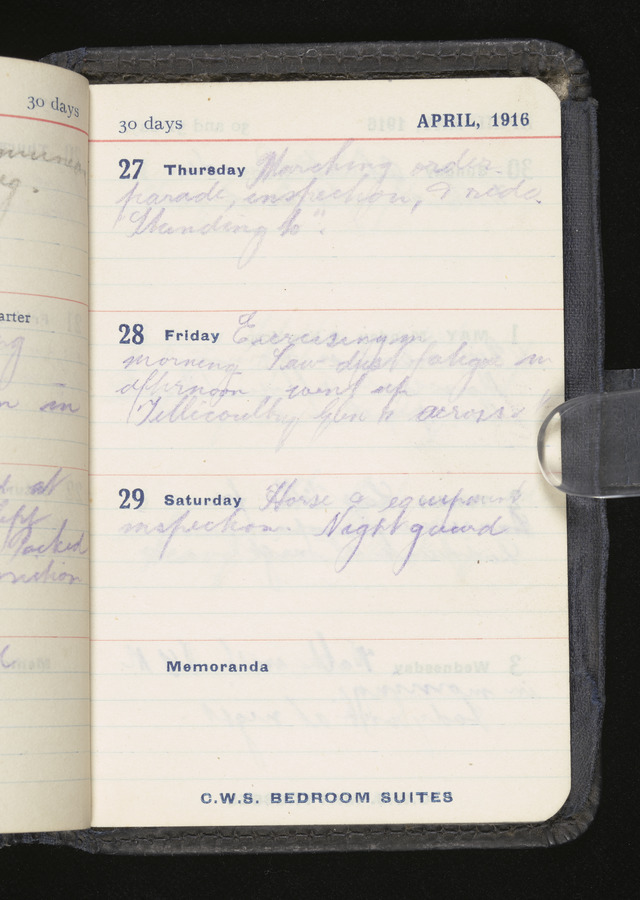 30 days
eg.
arter
in
at
Packed
30 days APRIL, 1916
27 Thursday Marching order
parade, inspection, &
"Standing to".
28 Friday Exercising in
morning Saw dust fatigue in
afternoon went up
Tillicoultry glen &
29 Saturday Horse & equipment
inspection. Night guard
Memoranda
C.W.S. BEDROOM SUITES